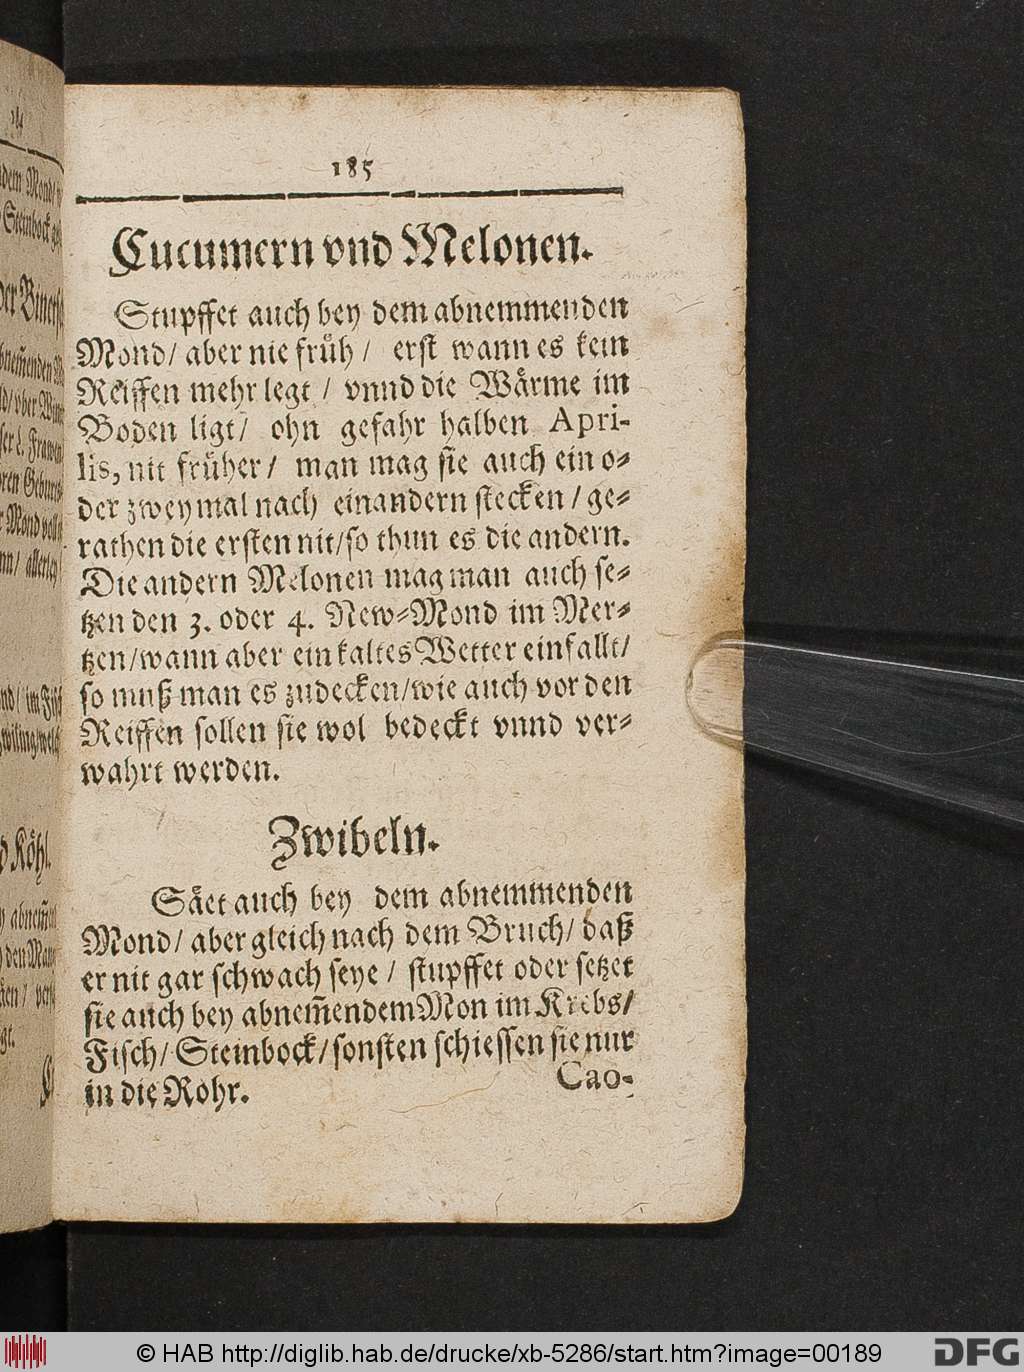 185
Cucumern vnd Melonen.
Stupffet auch bey dem abnemmenden
Mond/ aber nie früh/ erst wann es kein
Reiffen mehr legt / vnnd die Wärme im
Boden ligt/ ohn gefahr halben Apri-
lis, nit früher/ man mag sie auch ein o-
der zwey mal nach einandern stecken / ge-
rathen die ersten nit/so thun es die andern.
Die andern Melonen mag man auch se-
tzen den 3. oder 4. New-Mond im Mer-
tzen/wann aber ein kaltes Wetter einfallt/
so muß man es zudecken/wie auch vor den
Reiffen sollen sie wol bedeckt vnnd ver-
wahrt werden.
Zwibeln.
Säet auch bey dem abnemmenden
Mond/ aber gleich nach dem Bruch/ daß
er nit gar schwach seye / stupffet oder setzet
sie auch bey abnem̃endem Mon im Krebs/
Fisch/ Steinbock/sonsten schiessen sie nur
in die Rohr.
Cao-
© HAB http://diglib.hab.de/drucke/xb-5286/start.htm?image=00189
DFG